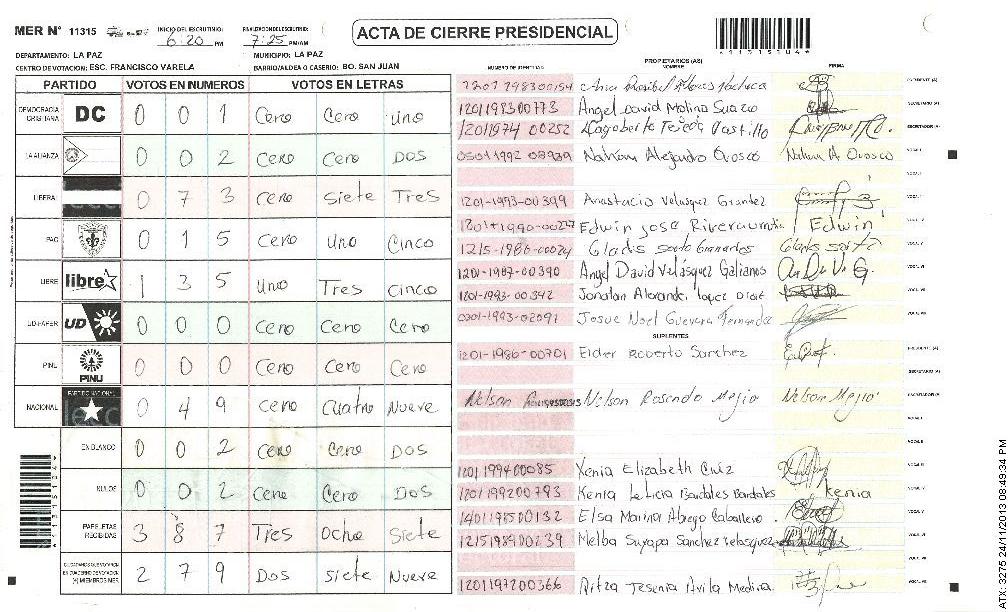 MER Nº 11315 INICIO DEL ESCRUTINIO: 6:20 PM FINALIZACION DEL ESCRUTINIO: 7:25 PM/AM
ACTA DE CIERRE PRESIDENCIAL
DEPARTAMENTO: LA PAZ MUNICIPIO: LA PAZ
CENTRO DE VOTACION: ESC. FRANCISCO VARELA BARRIO/ALDEA O CASERIO: BO. SAN JUAN
PARTIDO VOTOS EN NUMEROS VOTOS EN LETRAS
DEMOCRACIA CRISTIANA DC 0 0 1 Cero Cero uno
LA ALIANZA 0 0 2 cero Cero DOS
LIBERAL 0 7 3 cero siete Tres
PAC 0 1 5 Cero Uno Cinco
LIBRE libre 1 3 5 Uno Tres cinco
UD-FAPER UD 0 0 0 Cero Cero Cero
PINU PINU 0 0 0 Cero Cero Cero
NACIONAL PARTIDO NACIONAL 0 4 9 cero Cuatro Nueve
EN BLANCO 0 0 2 cero Cero DOS
NULOS 0 0 2 Cero Cero Dos
PAPELETAS RECIBIDAS 3 8 7 Tres Ocho Siete
CIUDADANOS QUE VOTARON EN CUADERNO DE VOTACION (+) MIEMBROS MER 2 7 9 Dos siete Nueve
NUMERO DE IDENTIDAD PROPIETARIOS (AS) NOMBRE FIRMA
PRESIDENTE (A)
1201198300773 Angel David Molina Suazo SECRETARIO (A)
12011974 00252 Dagoberto Tejeda Castillo ESCRUTADOR (A)
0501 1992 08939 Nahum Alejandro Orosco Nahum A Orosco VOCAL I
VOCAL II
1201-1993-00399 Anastacio Velasquez Grandez
Edwin Jose Rivera Edwin
1215-1986-00024 Gladis Gladis
1201-1987-00390 Angel David Velásquez Galianos VOCAL VI
1201-1993-00342 Jonatan lopez
0301-1993-02091 Josue Noel Guevara Fernandez
SUPLENTES
1201-1986-00701 Elder Roverto Sanchez PRESIDENTE (A)
SECRETARIO (A)
Nelson Nelson Rosendo Mejia Nelson Mejia ESCRUTADOR (A)
VOCAL I
VOCAL II
1201199400085 Xenia Elizabeth Cruz
1201199200793 Kenia Leticia Bardales Bardales kenia
1401198500132 Elsa Marina Abrego Caballero.
1215198900239 Melba Suyapa Sanchez Velasquez
1201197200366 Ritza Jesenia Avila Medina
ATX-3275 24/11/2013 08:49:34 PM